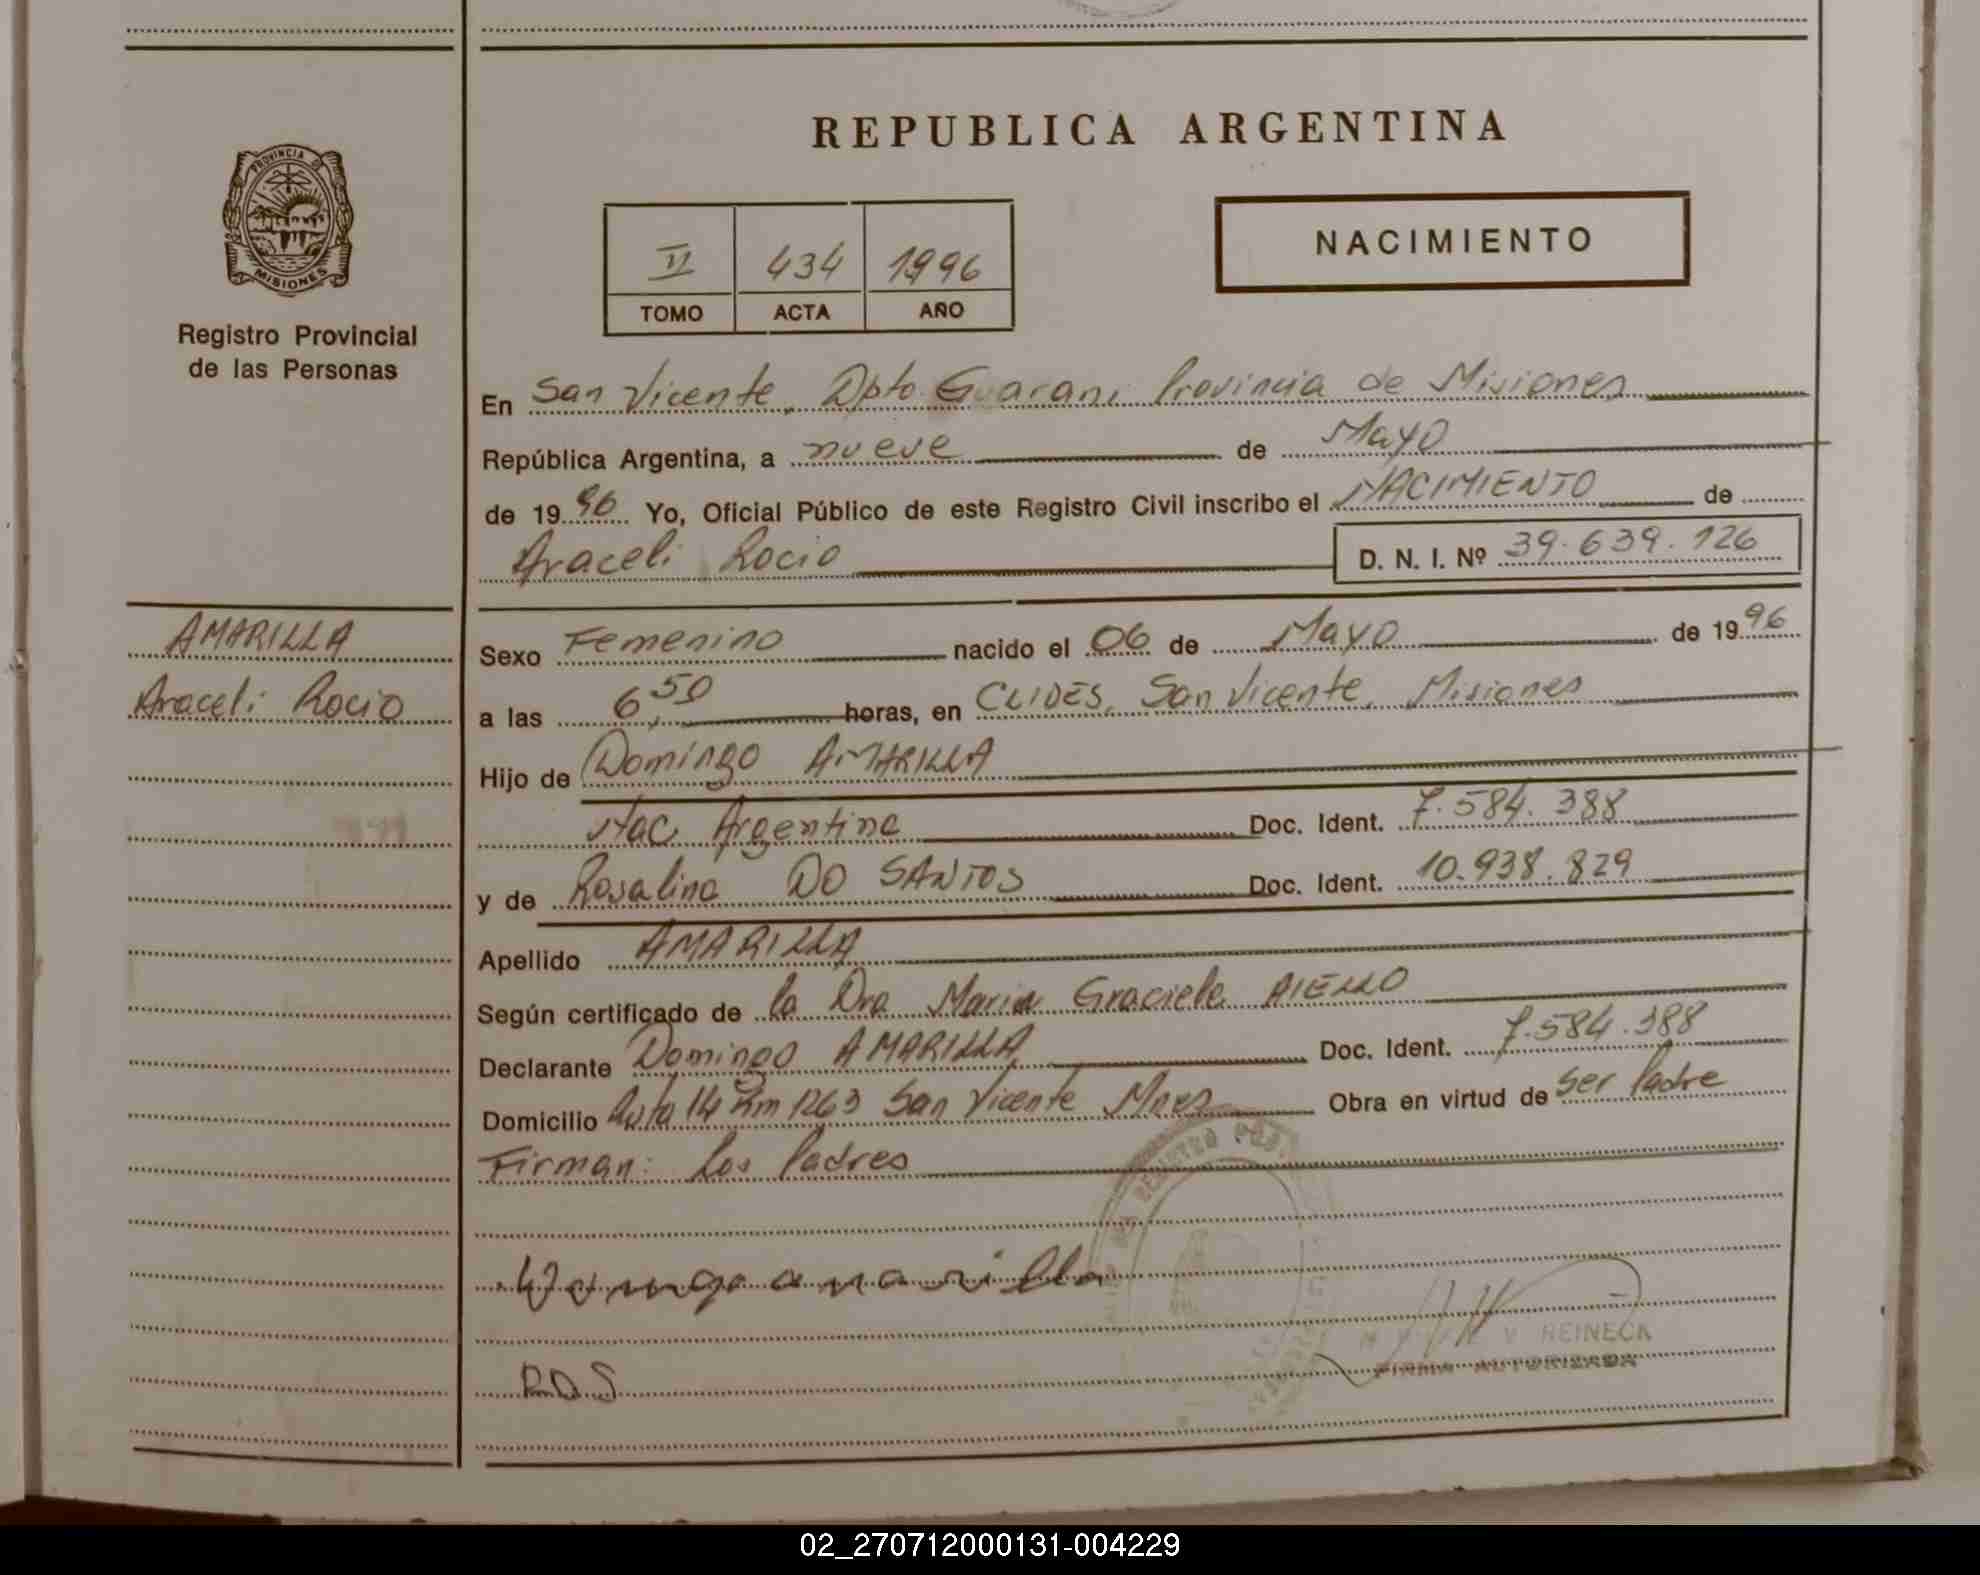 REPUBLICA ARGENTINA
PROVINCIA D
MISIONES
Registro Provincial
de las Personas
II 434 1996
TOMO ACTA AÑO
NACIMIENTO
En San Vicente, Dpto Guarani Provincia de Misiones
República Argentina, a nueve de Mayo
de 1996 Yo, Oficial Público de este Registro Civil inscribo el NACIMIENTO de
Araceli Rocio D. N. I. Nº 39.639.126
AMARILLA
Araceli Rocio
Sexo Femenino nacido el 06 de Mayo de 1996
a las 6,50 horas, en CLIDES, San Vicente, Misiones
Hijo de Domingo AMARILLA
Nac. Argentina Doc. Ident. 7.584.388
y de Rosalina DO SANTOS Doc. Ident. 10.938.829
Apellido AMARILLA
Según certificado de la Dra Maria Graciela AIELLO
Declarante Domingo AMARILLA Doc. Ident. 7.584.388
Domicilio Ruta 14 Km 1263 San Vicente Mnes Obra en virtud de Ser Padre
Firman: Los Padres
R.D.S
V REINECK
FIRMA AUTORIZADA
02_270712000131-004229